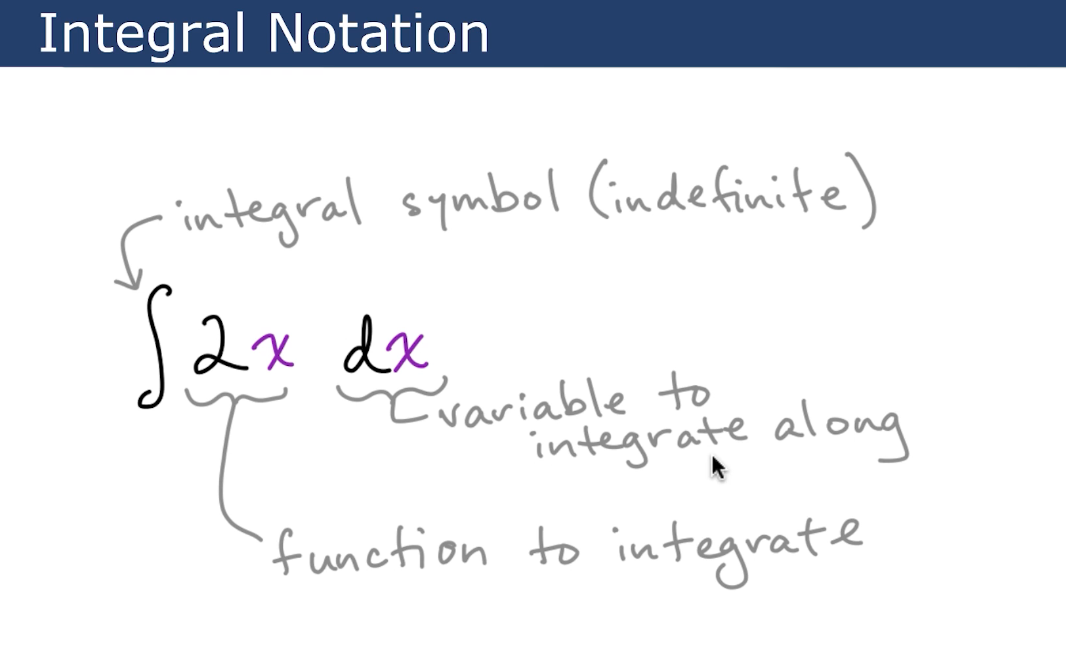 Integral Notation
integral symbol (indefinite)
∫ 2x dx
variable to
integrate along
function to integrate